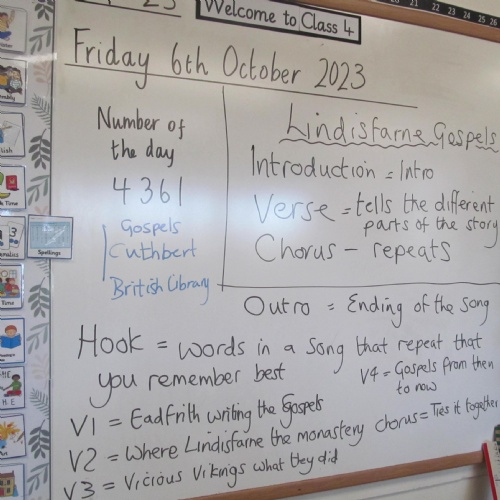 Welcome to Class 4
Friday 6th October 2023
Number of
the day
4361
Gospels
Cuthbert
British Library
Lindisfarne Gospels
Introduction = Intro
Verse = tells the different
parts of the story
Chorus - repeats
Outro = Ending of the song
Hook = words in a song that repeat that
you remember best
V4 = Gospels from then
to now
V1 = Eadfrith writing the Gospels
V2 = Where Lindisfarne the monastery
chorus = Ties it together
V3 = Vicious Vikings what they did
Spellings
22 23 24 25 26